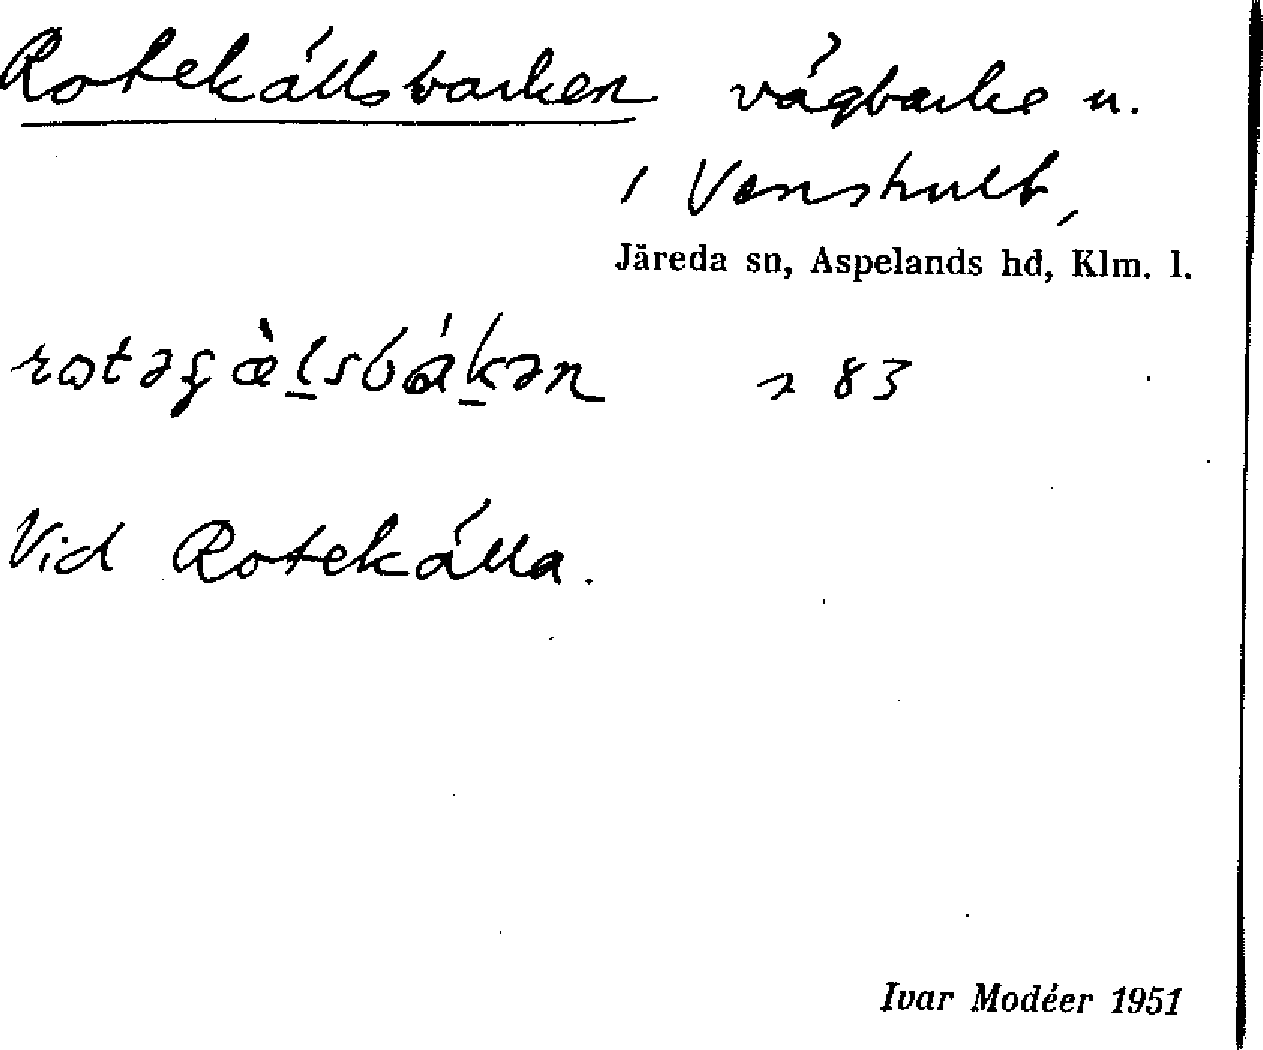 Rotekällsbacken vägbacke u.
i Venshult,
Järeda sn, Aspelands hd, Klm. l.
83
Vid Rotekälla.
Ivar Modéer 1951